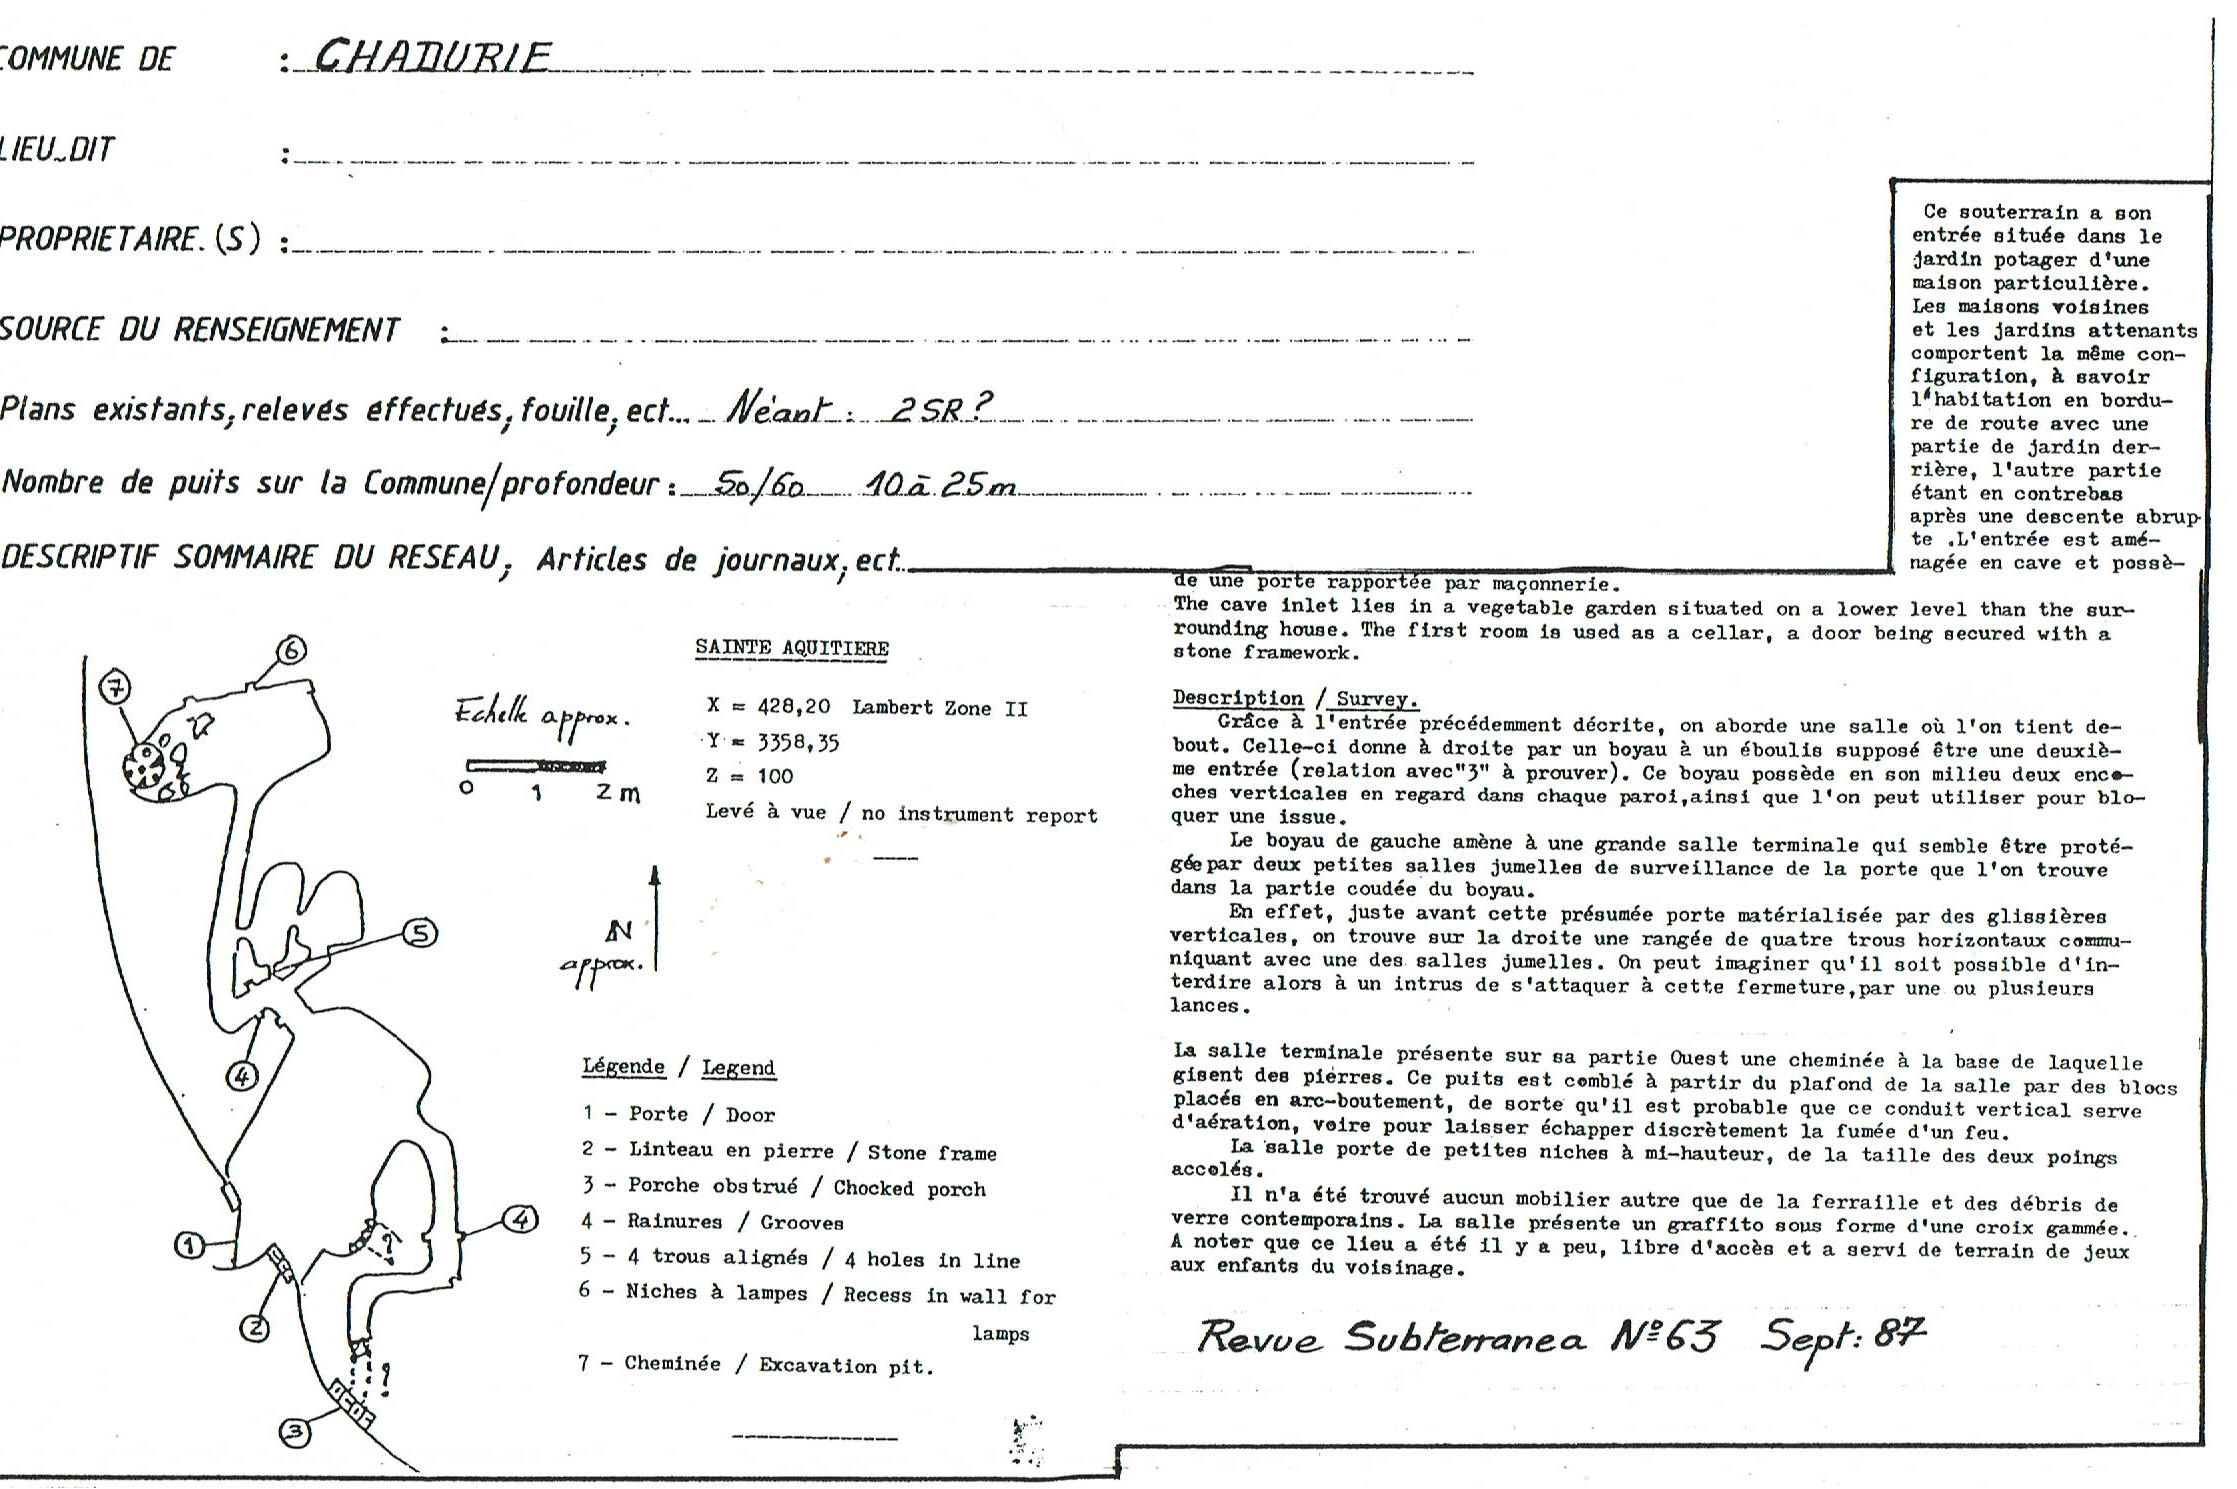 COMMUNE DE : CHADURIE
LIEU-DIT :
PROPRIETAIRE.(S) :
SOURCE DU RENSEIGNEMENT :
Plans existants, relevés éffectués, fouille, ect... Néant : 2SR ?
Nombre de puits sur la Commune/profondeur : 50/60 10 à 25m
DESCRIPTIF SOMMAIRE DU RESEAU, Articles de journaux, ect..
Ce souterrain a son
entrée située dans le
jardin potager d'une
maison particulière.
Les maisons voisines
et les jardins attenants
comportent la même con-
figuration, à savoir
l'habitation en bordu-
re de route avec une
partie de jardin der-
rière, l'autre partie
étant en contrebas
après une descente abrup-
te .L'entrée est amé-
nagée en cave et possè-
de une porte rapportée par maçonnerie.
The cave inlet lies in a vegetable garden situated on a lower level than the sur-
rounding house. The first room is used as a cellar, a door being secured with a
stone framework.
Description / Survey.
Grâce à l'entrée précédemment décrite, on aborde une salle où l'on tient de-
bout. Celle-ci donne à droite par un boyau à un éboulis supposé être une deuxiè-
me entrée (relation avec"3" à prouver). Ce boyau possède en son milieu deux enco-
ches verticales en regard dans chaque paroi,ainsi que l'on peut utiliser pour blo-
quer une issue.
Le boyau de gauche amène à une grande salle terminale qui semble être proté-
gée par deux petites salles jumelles de surveillance de la porte que l'on trouve
dans la partie coudée du boyau.
En effet, juste avant cette présumée porte matérialisée par des glissières
verticales, on trouve sur la droite une rangée de quatre trous horizontaux commu-
niquant avec une des salles jumelles. On peut imaginer qu'il soit possible d'in-
terdire alors à un intrus de s'attaquer à cette fermeture,par une ou plusieurs
lances.
La salle terminale présente sur sa partie Ouest une cheminée à la base de laquelle
gisent des pierres. Ce puits est comblé à partir du plafond de la salle par des blocs
placés en arc-boutement, de sorte qu'il est probable que ce conduit vertical serve
d'aération, voire pour laisser échapper discrètement la fumée d'un feu.
La salle porte de petites niches à mi-hauteur, de la taille des deux poings
accolés.
Il n'a été trouvé aucun mobilier autre que de la ferraille et des débris de
verre contemporains. La salle présente un graffito sous forme d'une croix gammée.
A noter que ce lieu a été il y a peu, libre d'accès et a servi de terrain de jeux
aux enfants du voisinage.
Revue Subterranea N°63 Sept: 87
SAINTE AQUITIERE
X = 428,20 Lambert Zone II
Y = 3358,35
Z = 100
Levé à vue / no instrument report
Echelle approx.
0 1 2 m
N
approx.
6
7
5
4
1
2
3
4
?
?
Légende / Legend
1 - Porte / Door
2 - Linteau en pierre / Stone frame
3 - Porche obstrué / Chocked porch
4 - Rainures / Grooves
5 - 4 trous alignés / 4 holes in line
6 - Niches à lampes / Recess in wall for
lamps
7 - Cheminée / Excavation pit.